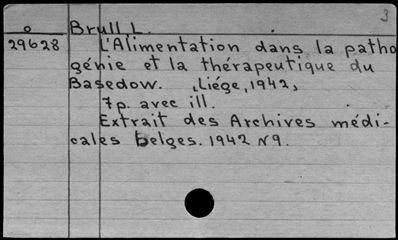 3
o Brull L.
29628 L'Alimentation dans la patho
génie et la thérapeutique du
Basedow. Liége, 1942,
7p. avec ill.
Extrait des Archives médi-
cales belges. 1942 N9.